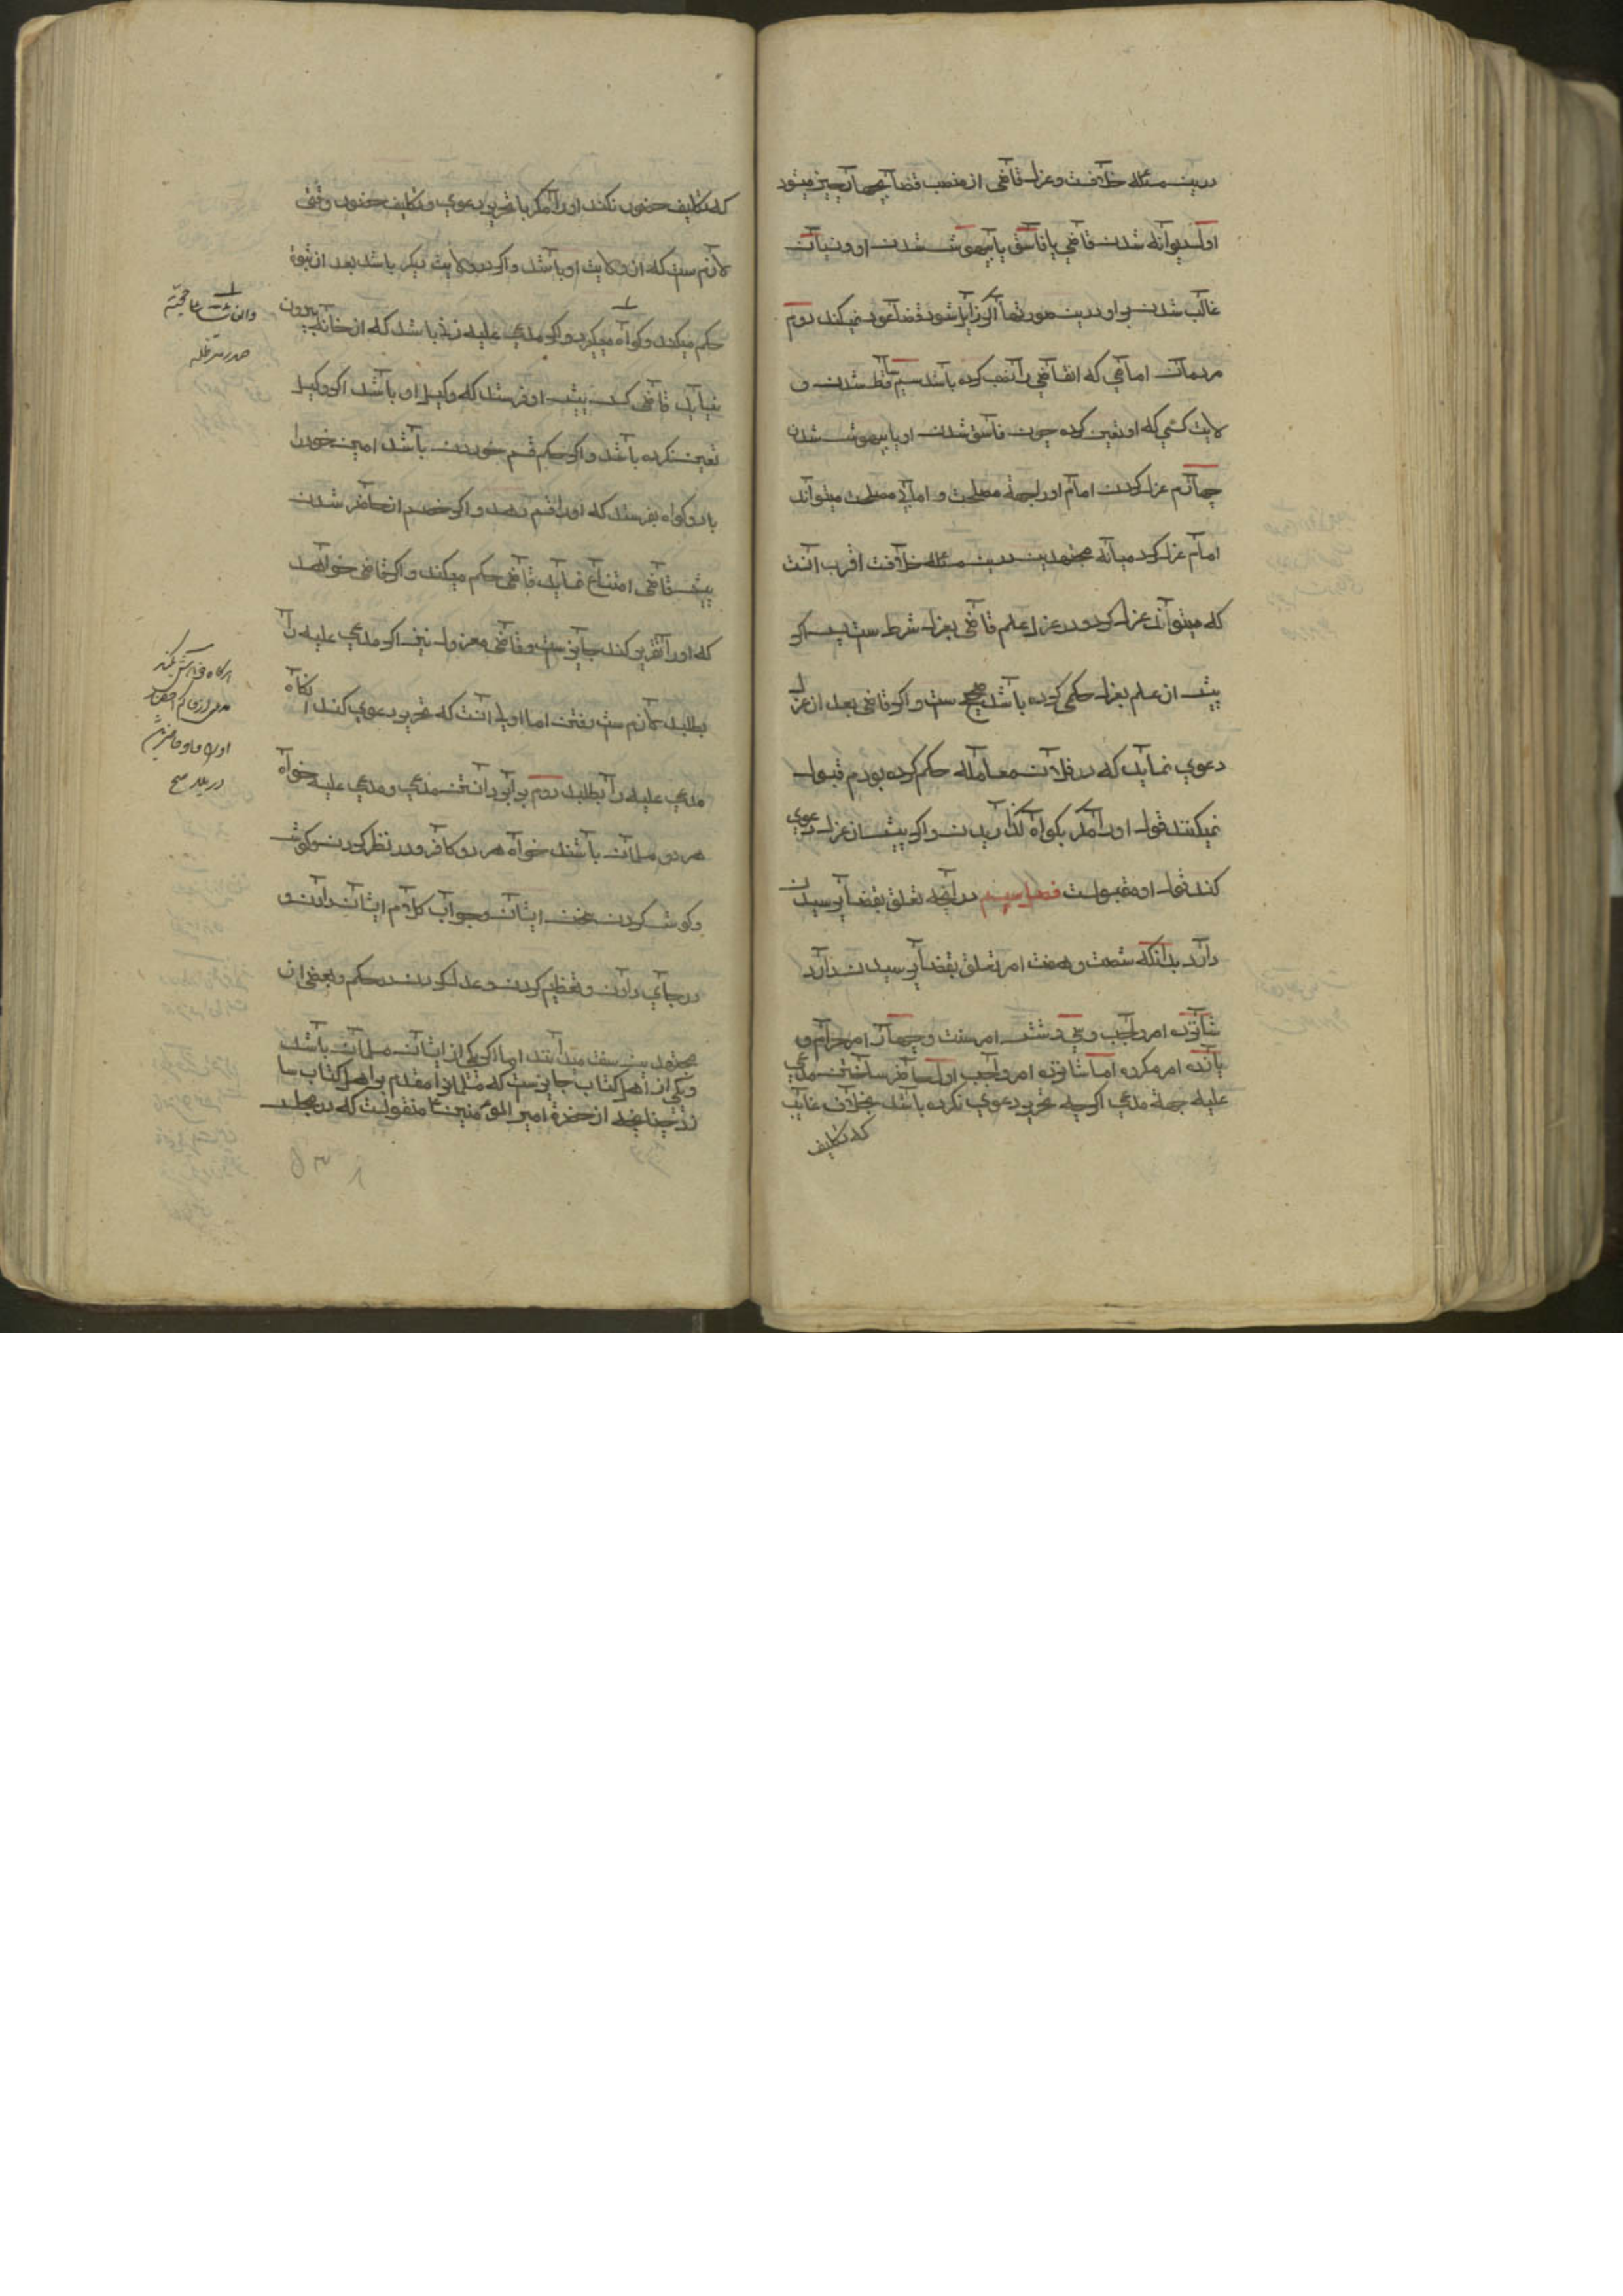 درین مسئله خلافست و عزل قاضی از منصب قضا بچهار چیز میشود
اول دیوانه شدن قاضی یا فاسق یا بیهوش شدن او و نسیان
غالب شدن بر او و درین صورتها اگر زایل شود قضا عود نمیکند دوم
مردمان امامی که انقاضی را نصب کرده باشد سیم ساقط شدن و
لایت کسی که او تعین کرده چون فاسق شدن او یا بیهوش شدن
چهارم عزل کردن امام او را بجهة مصلحت و اما بلا مصلحت میتواند
امام عزل کرد میانه مجتهدین درین مسئله خلافست اقرب انست
که میتواند عزل کرد و در عزل علم قاضی بعزل شرط ست پس اگر
پیش از علم بعزل حکمی کرده باشد صحیح ست و اگر قاضی بعد از عزل
دعوی نماید که در فلان معامله حکم کرده بودم قبول
نمیکنند قول او را مگر بکواه کذرانیدن و اگر پیش از عزل دعوی
کند قول او مقبولست فصل سیم در آنچه تعلق بقضا پرسیدن
دارد بدانکه شصت و هفت امر تعلق بقضا پرسیدن دارد
شانزده امر واجب و سی و شش امر سنت و چهار امر حرام و
یازده امر مکروه اما شانزده امر واجب اول حاضر ساختن مدعی
علیه جهة مدعی اگرچه تحریر دعوی نکرده باشد بخلاف غایب
که تکلیف
که تکلیف حضور نکند او را مگر با تحریر دعوی و تکلیف حضور وقتی
لازم ست که ان ولایت او باشد و اگر در ولایت دیگر باشد بعد از ثبوة
حکم میکند و کواه میگیرد و اگر مدعی علیه زنی باشد که از خانه بیرون
نیاید قاضی کسی پیش او فرستد که وکیل او باشد اگر وکیل
تعین نکرده باشد و اگر حکم قسم خوردن باشد امین خود را
با دو کواه بفرستد که او را قسم دهد و اگر خصم از حاضر شدن
پیش قاضی امتناع نماید قاضی حکم میکند و اگر قاضی خواهد
که او را تعزیر کند جایز ست و قاضی معزول نیز اگر مدعی علیه را
بطلبد لازم ست رفتن اما اولی انست که تحریر دعوی کند انکاه
مدعی علیه را بطلبد دوم برابر داشتن مدعی و مدعی علیه خواه
هر دو مسلمان باشند خواه هر دو کافر و در نظر کردن و کوش
و کوش کردن سخن ایشان و جواب کلام ایشان دادن و
در جای دادن و تعظیم کردن و عدل کردن در حکم و بعضی از
مجتهدین سنت میدانند اما اگر یکی از ایشان مسلمان باشد
و یکی از اهل کتاب جایز ست که مسلمانرا مقدم بر اهل کتاب سا
زد چنانچه از حضرة امیر المؤمنین ع منقولست که در مجلس